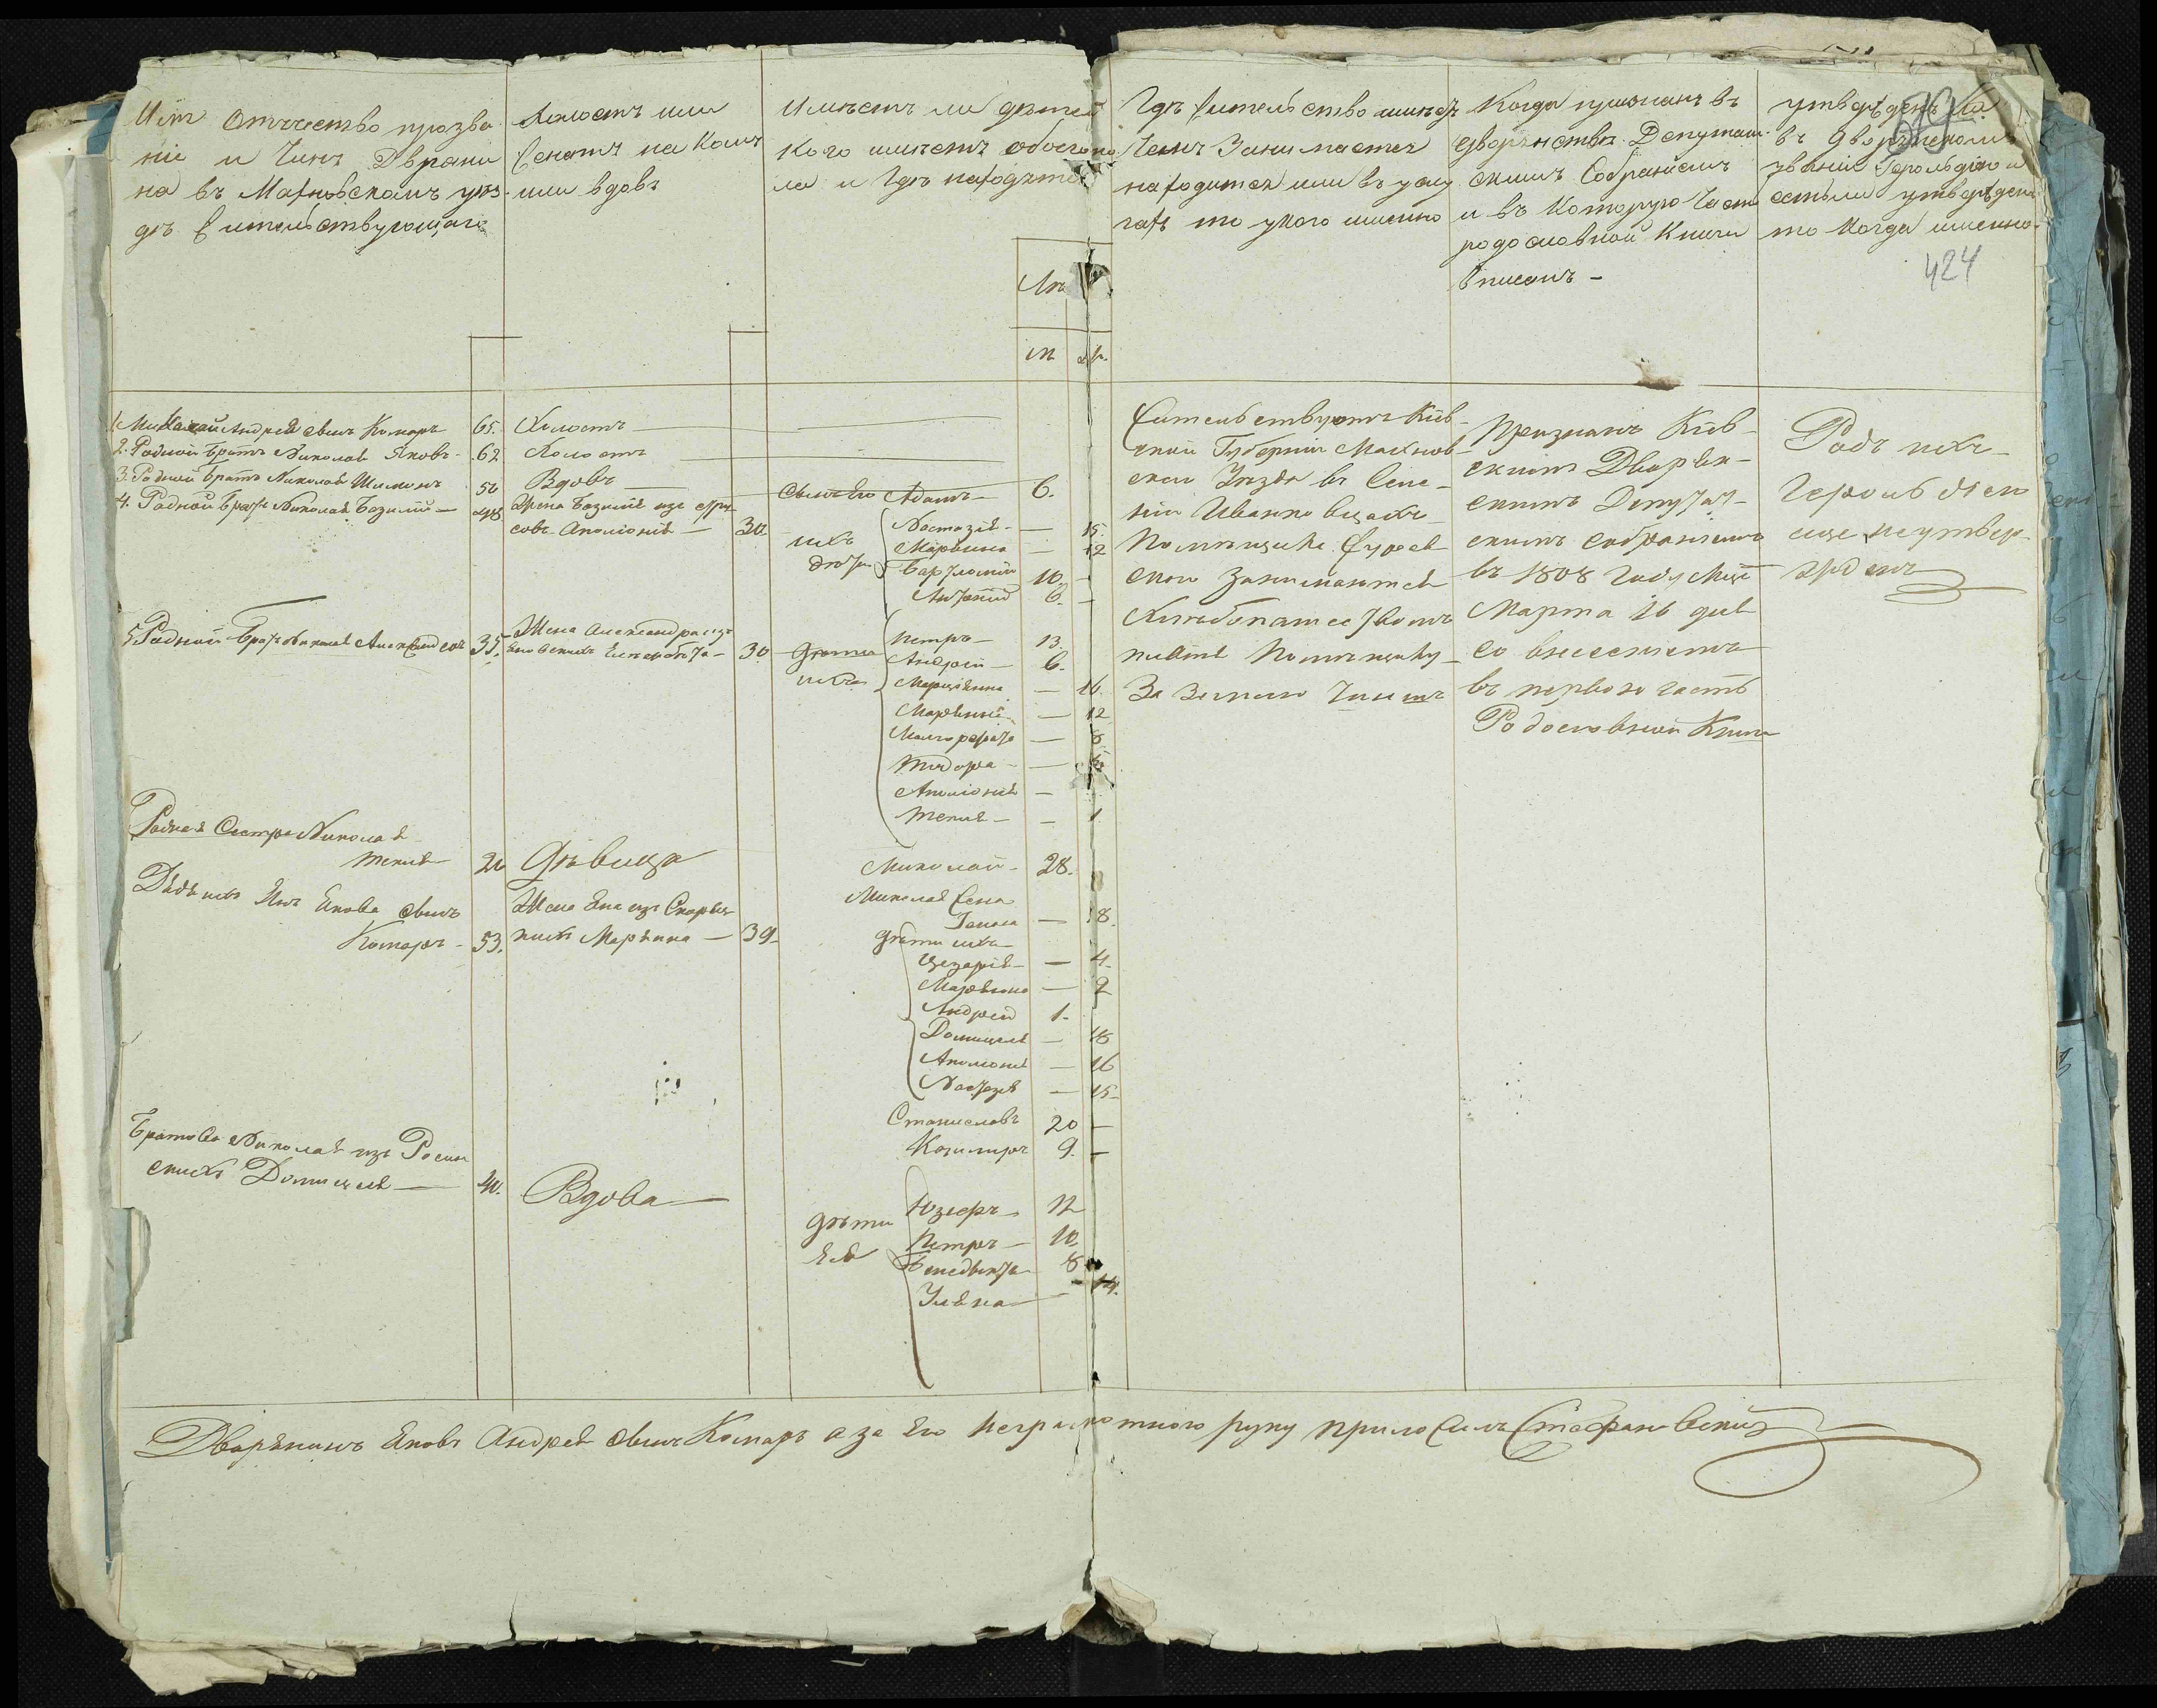 Имя Отчество прозва
ніе и Чинъ Дворяни
на въ Махновскомъ уѣз-
дѣ Жительствующаго
Холостъ или
Женатъ на Комъ
или вдовъ
Имѣетъ ли дѣтей
Кого имѣетъ обоего по
ла и Гдѣ находятся
Лѣ
м
ж.
Гдѣ Жительство имѣетъ
Чемъ Занимается
находится или въ услу
гахъ то у кого именно
Когда признанъ въ
дворянствѣ Депутат-
скимъ Собраніемъ
и въ Которую Часть
родословной Книги
Вписанъ -
утвержденъ ли
въ Дворянскомъ
званіи Герольдіею и
естьли утвержденъ
то Когда именно-
424
1. Миколай Андрея сынъ Комаръ 65. Холостъ
2. Родной братъ Николая Яковъ - 62 Холостъ
3. Родной братъ Николая Шимонъ 50 Вдовъ сынъ Его Адамъ - 6.
4. Родной братъ Николая Базилій - 48 Жена Базилія изъ
совъ Аполіонія - 30.
ихъ
дѣти
Настазія - 15.
Марьяна - 12
Барталомій 10. -
Антоній 6. -
5 Родной братъ Николая Александеръ 35. Жена Александра изъ
Елисабета - 30
дѣти
ихъ
Петръ - 13.
Андрей - 6.
Марціянна - 16.
Маріянна - 12
Малгората - 8
Теодора -
Аполіонія -
Текля - 1
Родная Сестра Николая
Текля 20 Дѣвица
Дядя ихъ Янъ Якова сынъ
Комаръ - 53.
Жена Яна изъ
Марьяна - 39-
Миколай - 28.
Миколая Жена
- 18.
дѣти ихъ
Цезарія - 4.
Марьяна - 2
Андрей 1.
Домицеля - 18
Аполіонія - 16
Настазія - 15-
Станиславъ 20 -
Казимиръ 9. -
Братова Николая изъ Росин
скихъ Домицеля - 40. Вдова
дѣти
Ея
Юзефъ 12
Петръ - 10.
Бенедыктъ 8
Уляна - 14.
Жительствуютъ Кіев-
ской Губерніи Махнов-
скаго Уѣзда въ Селе-
ніи
Помѣщика
скаго Занимаются
Хлѣбопашествомъ
платя Помѣщику
За Землю Чиншъ
Признанъ Кіев-
скимъ Дворян-
скимъ Депутат-
скимъ собраніемъ
въ 1808 Году Мца
Марта 16 дня
со внесеніемъ
въ первою часть
Родословной Книги
Родъ ихъ
Герольдіею
еще неутвер-
жденъ
Дворянинъ Яковъ Андрея сынъ Комаръ а за Его неграмотного руку приложилъ Стефановскій